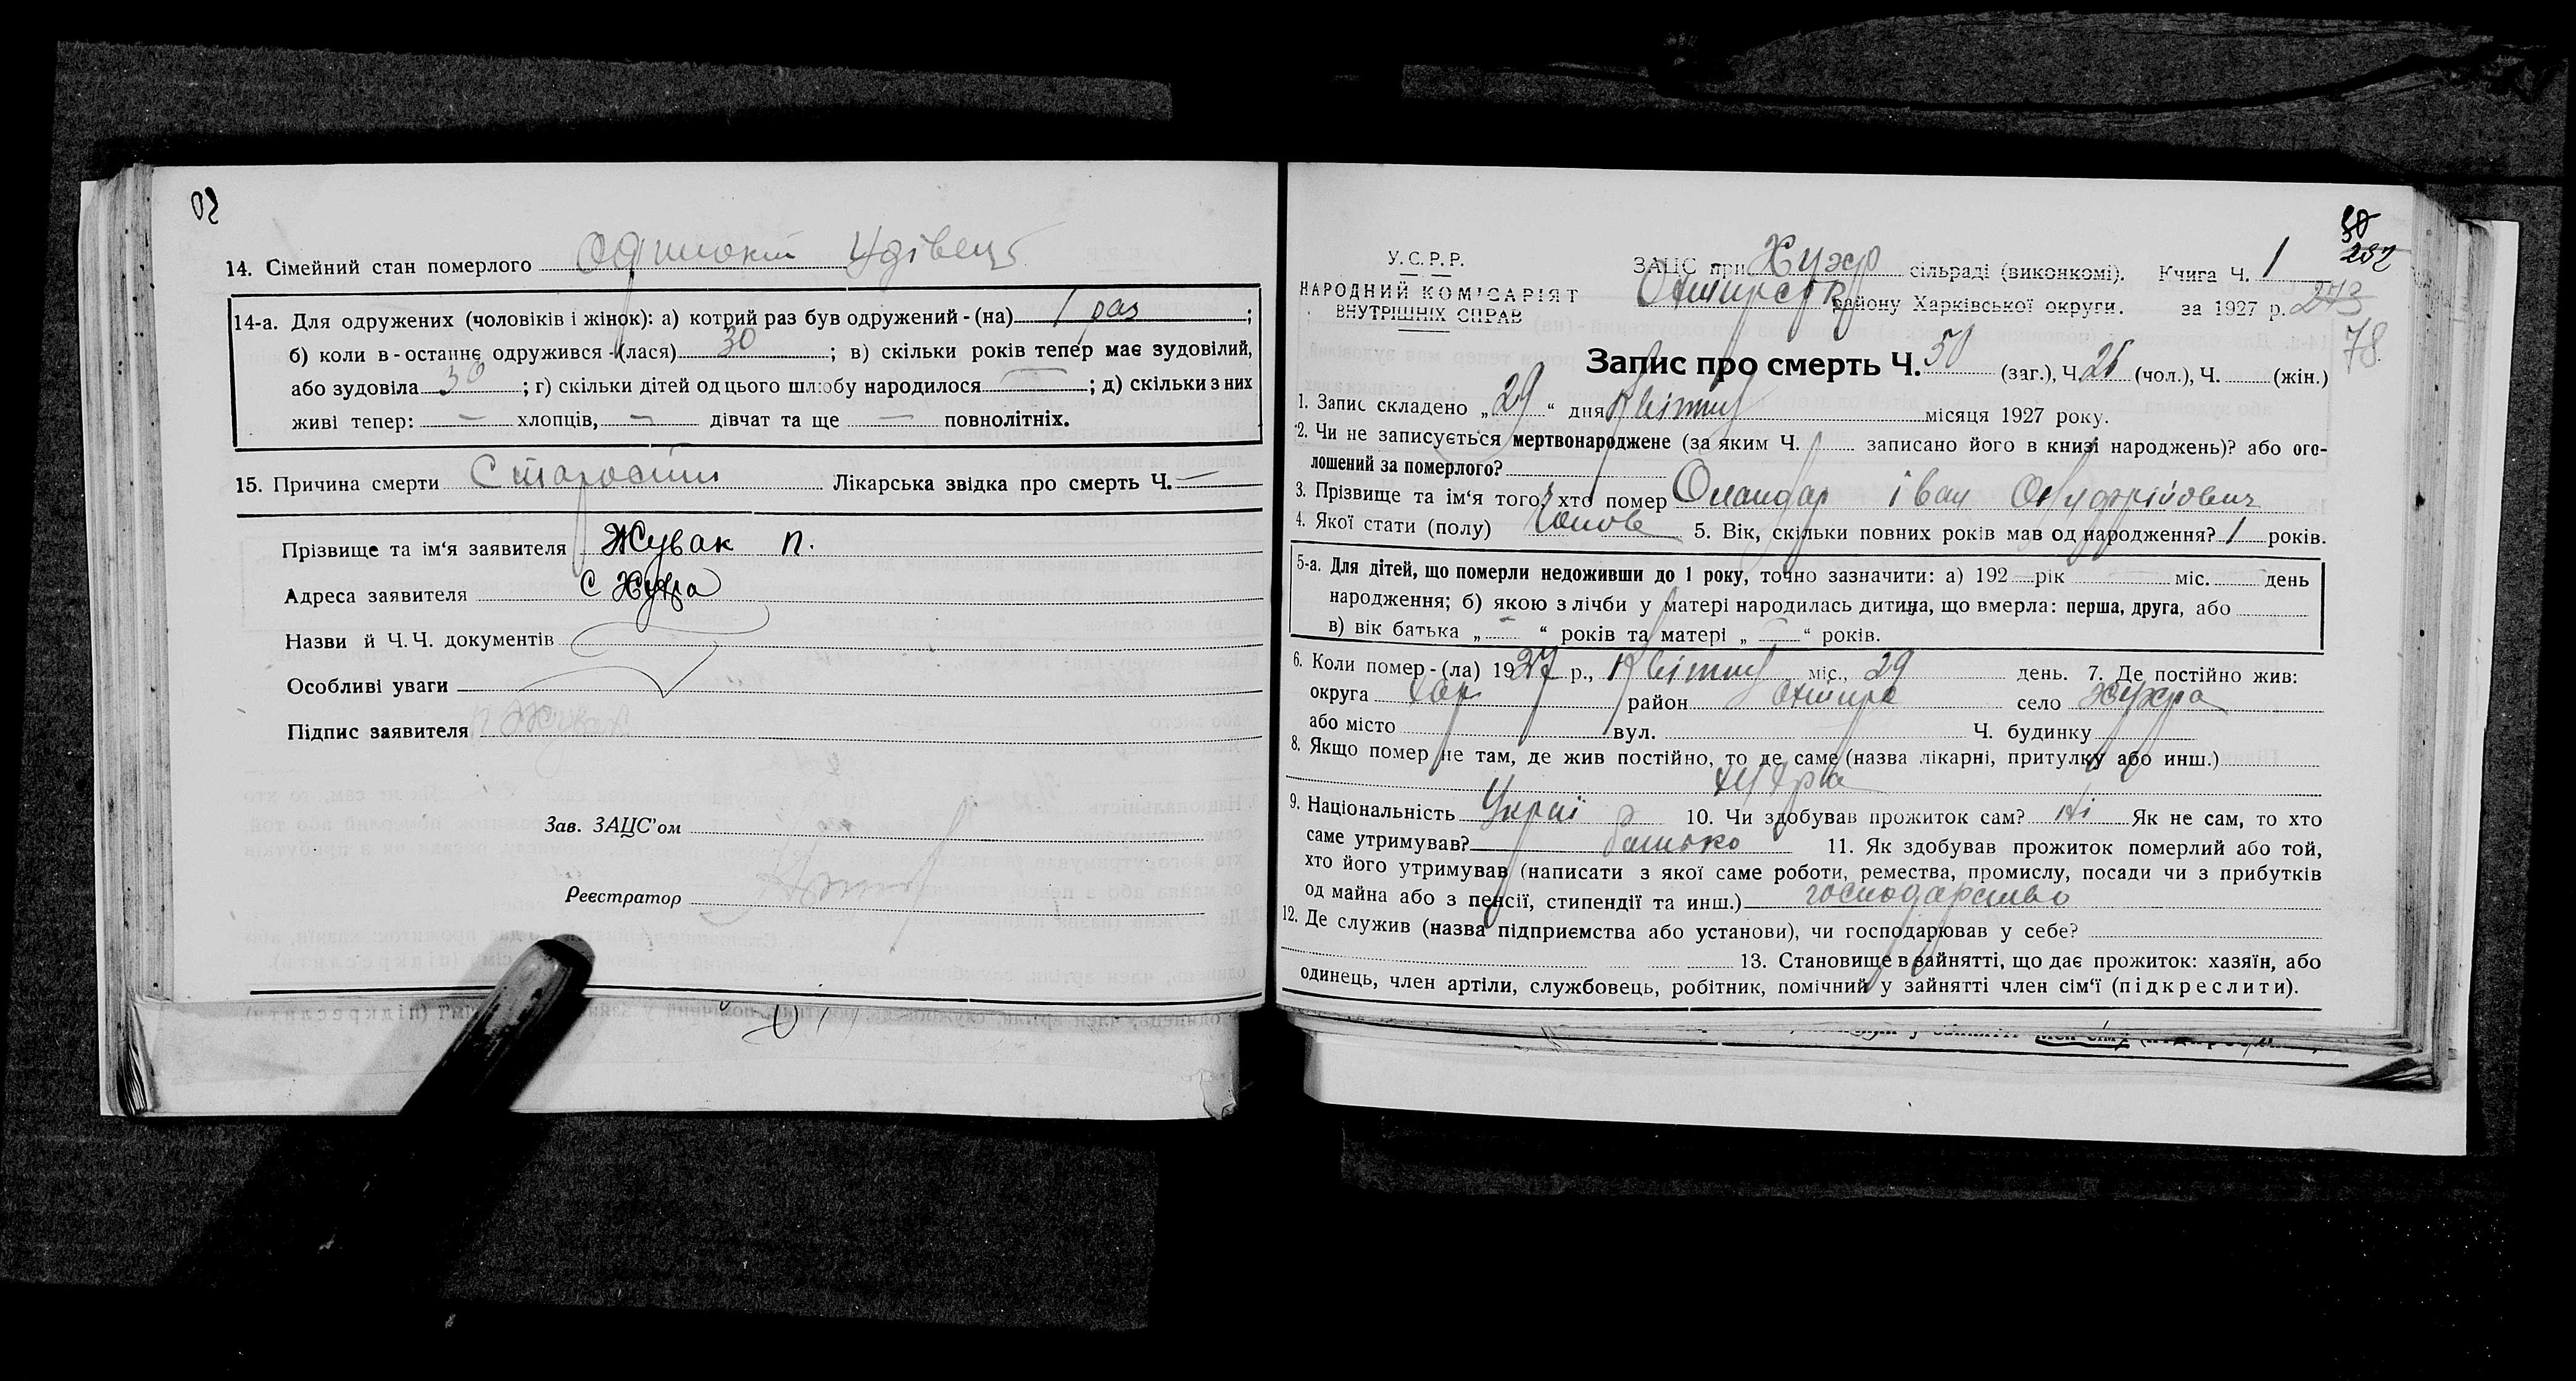 14. Сімейний стан померлого Одинокий Удівець
14-а. Для одружених (чоловіків і жінок): а) котрий раз був одружений - (на) 1 раз ;
б) коли в - останнє одружився - (лася) 30 ; в) скільки років тепер має зудовілий,
або зудовіла 30 ; г) скільки дітей од цього шлюбу народилося — ; д) скільки з них
живі тепер: — хлопців, — дівчат та ще — повнолітніх.
15. Причина смерти Старости Лікарська звідка про смерть Ч. —
Прізвище та ім‘я заявителя Жувак П.
Адреса заявителя С Хухра
Назви й Ч. Ч. документів
Особливі уваги
Підпис заявителя П Жувак
Зав. ЗАЦС’ом
Реєстратор
У. С. Р. Р.
НАРОДНИЙ КОМІСАРІЯТ
ВНУТРІШНІХ СПРАВ
ЗАЦС при Хухр сільраді (виконкомі). Книга Ч. 1
району Харківської округи. за 1927 р.
50
252
273
78
Запис про смерть Ч. 50 (заг.), Ч. 26 (чол.), Ч. (жін.)
1. Запис складено „ 29 “ дня Квітня місяця 1927 року.
2. Чи не записується мертвонароджене (за яким Ч. записано його в книзі народжень)? або ого-
лошений за померлого?
3. Прізвище та ім‘я того, хто помер Іван
4. Якої стати (полу) 5. Вік, скільки повних років мав од народження? 1 років.
5-а. Для дітей, що померли недоживши до 1 року, точно зазначити: а) 192 рік міс. день
народження; б) якою з лічби у матері народилась дитина, що вмерла: перша, друга, або
в) вік батька „ — “ років та матері „ — “ років.
6. Коли помер - (ла) 1927 р., Квітня міс., 29 день. 7. Де постійно жив:
округа Хар район Охтирс село Хухра
або місто вул. Ч. будинку
8. Якщо помер не там, де жив постійно, то де саме (назва лікарні, притулку або инш.)
Хухра
9. Національність Украї 10. Чи здобував прожиток сам? ні Як не сам, то хто
саме утримував? батько 11. Як здобував прожиток померлий або той,
хто його утримував (написати з якої саме роботи, ремества, промислу, посади чи з прибутків
од майна або з пенсії, стипендії та инш.) господарство
12. Де служив (назва підприємства або установи), чи господарював у себе?
13. Становище в зайнятті, що дає прожиток: хазяїн, або
одинець, член артіли, службовець, робітник, помічний у зайнятті член сім‘ї (підкреслити).